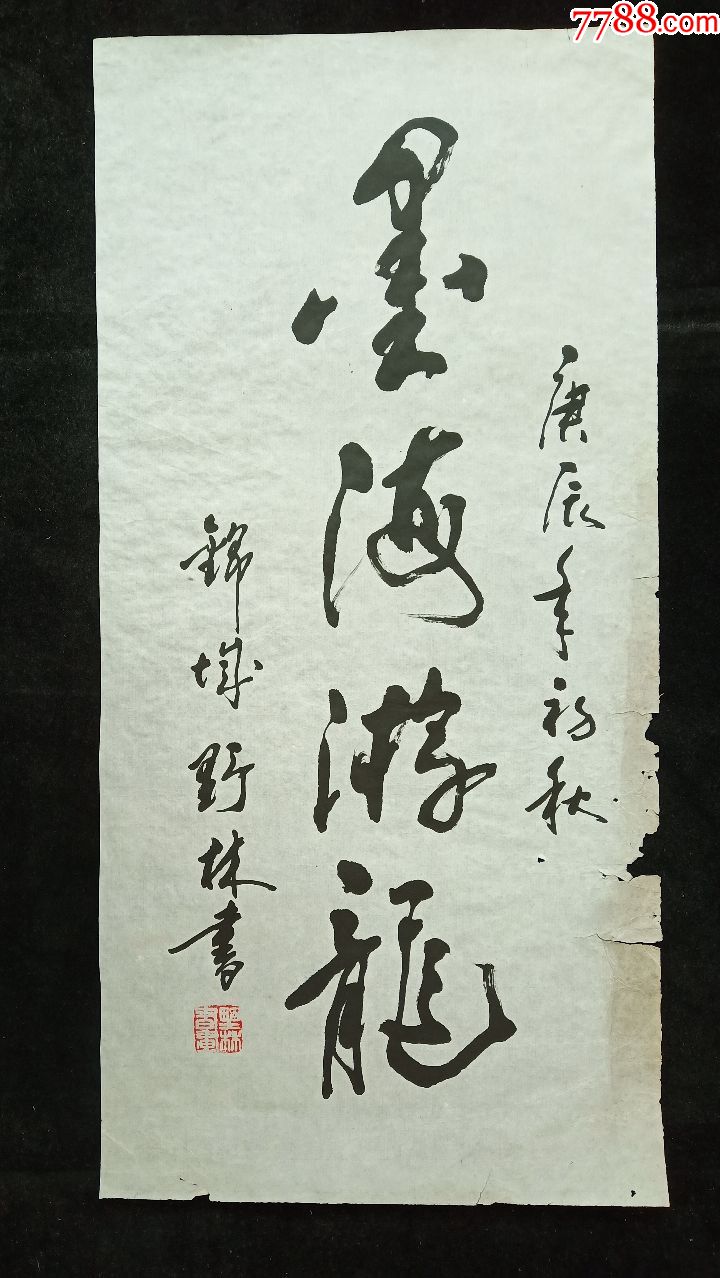 7788.com
庚辰年初秋
墨海游龍
錦城野林書
野林書畫